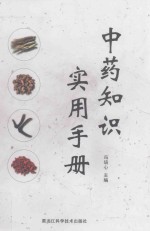 中药知识
实用手册
主编
黑龙江科学技术出版社